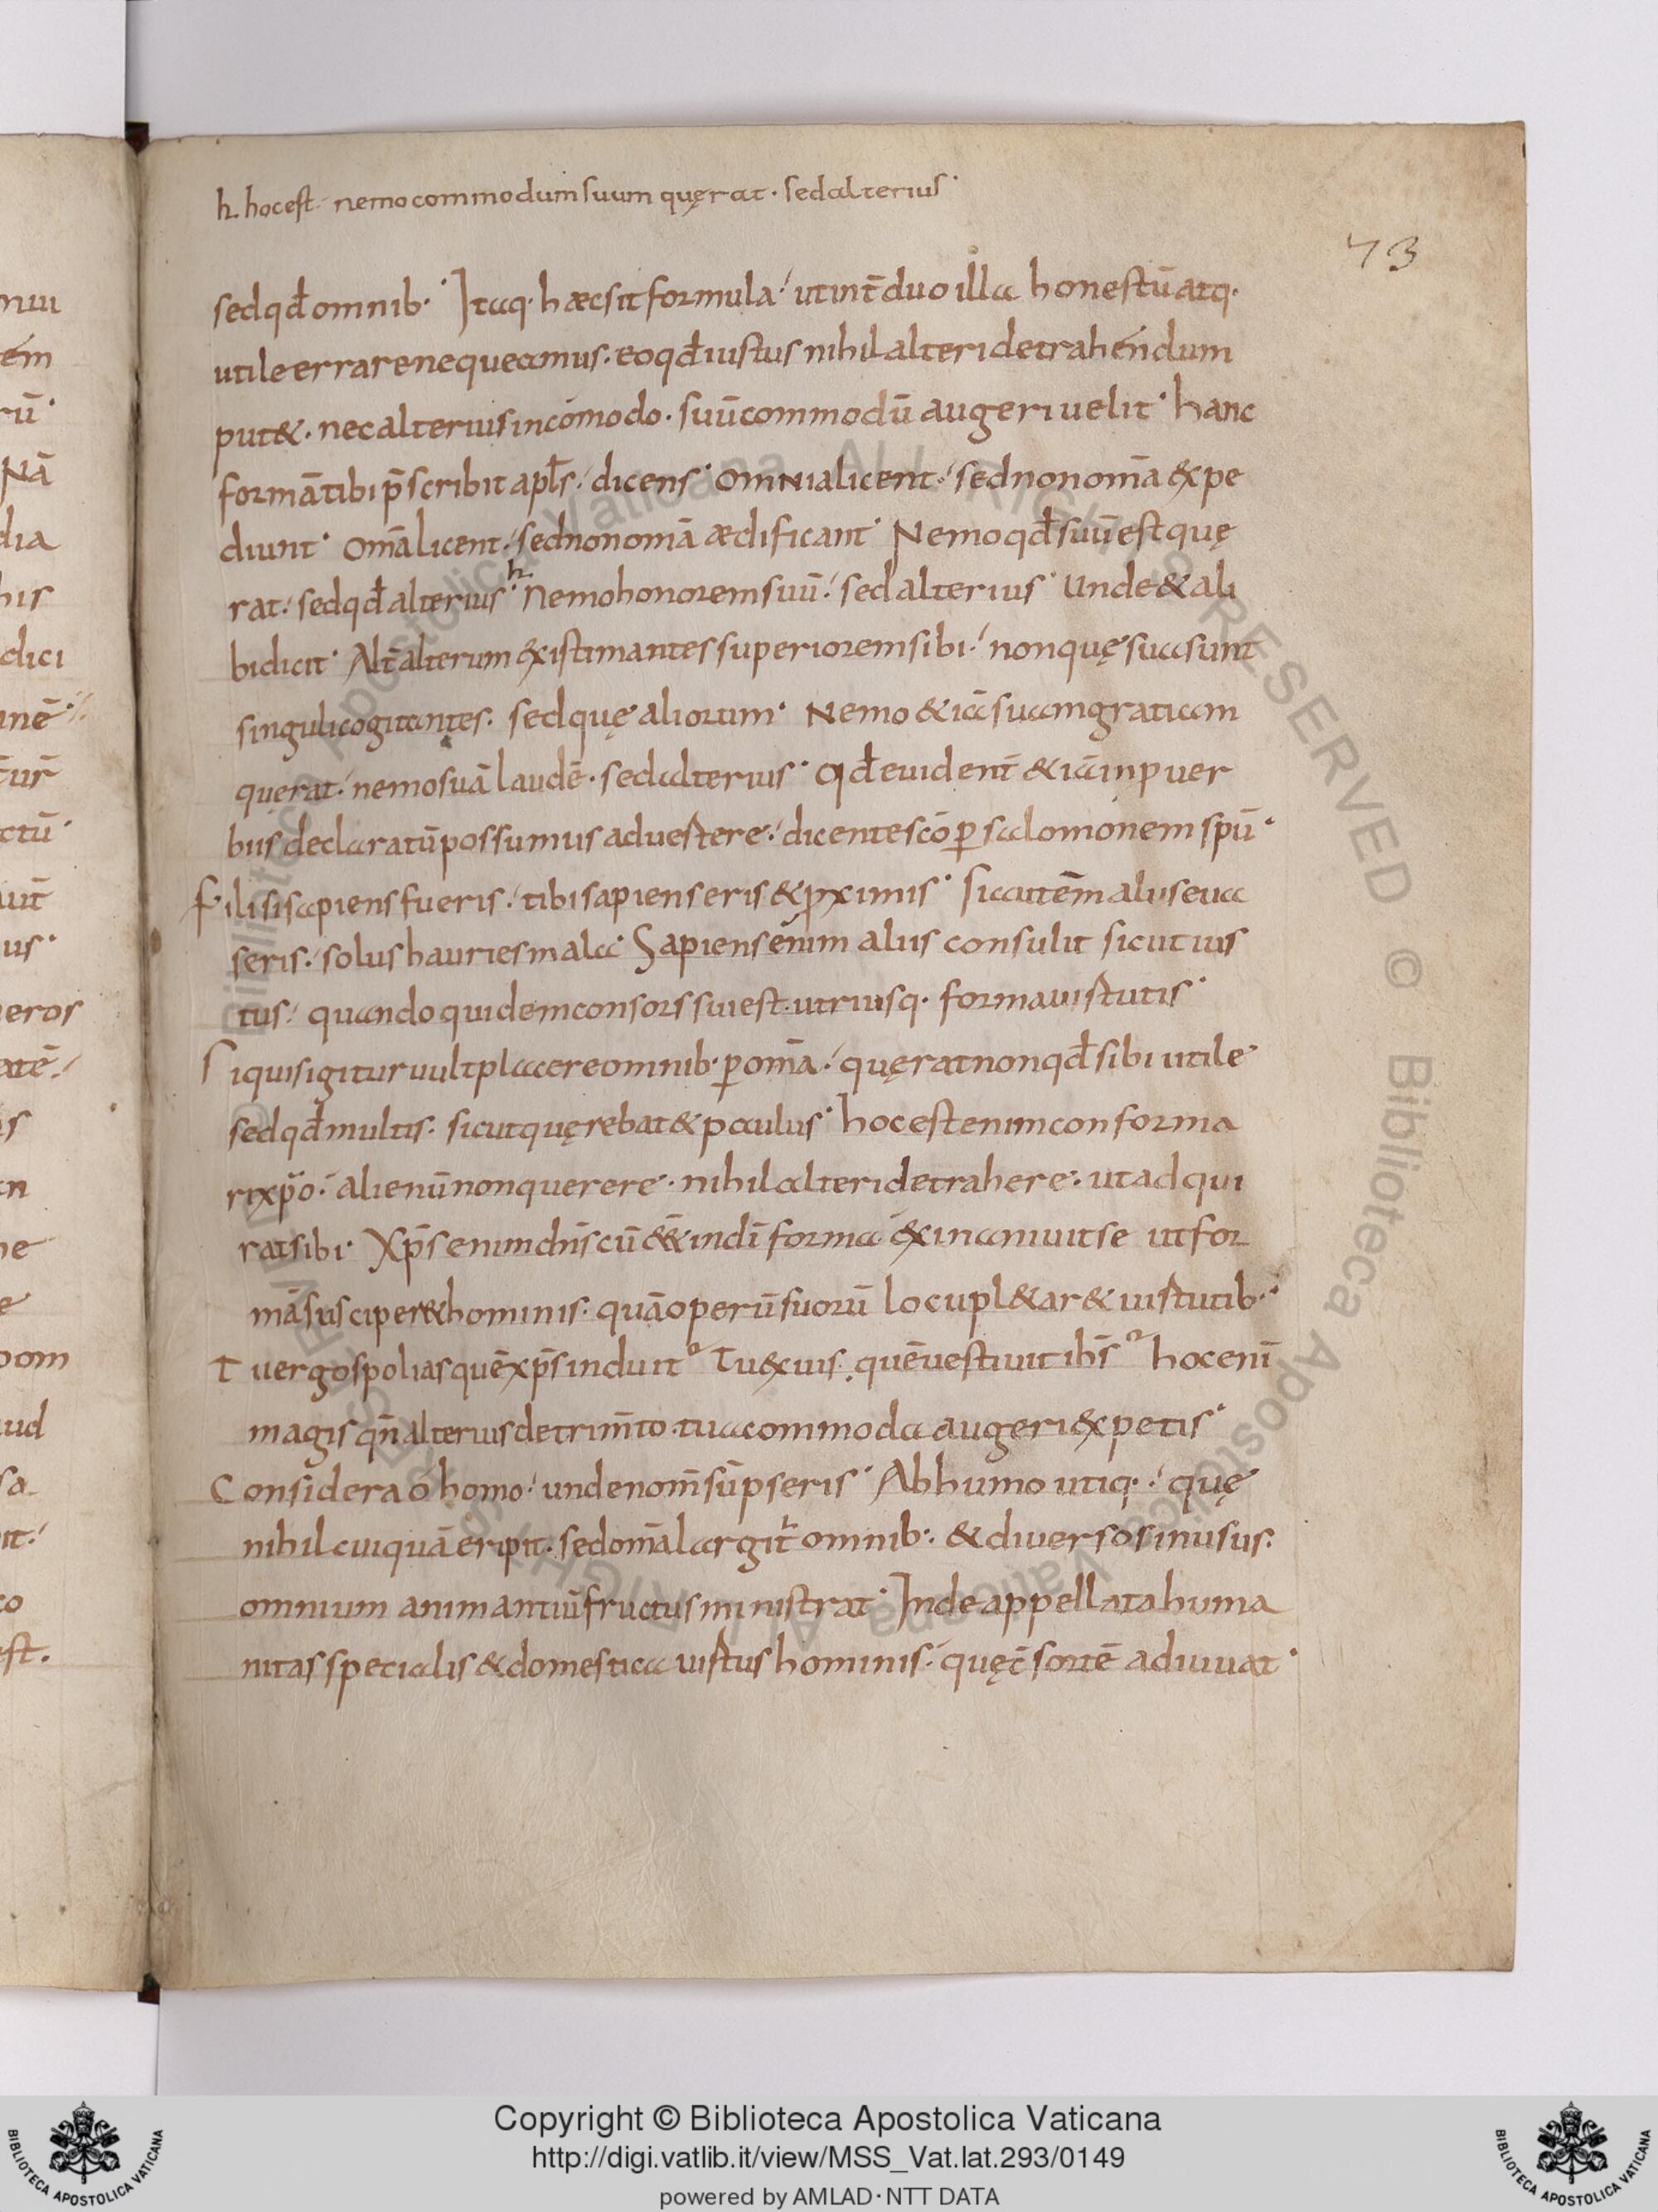 h. hoc est· nemo commodum suum quęrat· sed alterius·
73
sed qđ omnib·· Itaq· hæc sit formula· ut int̄ duo illa honestū atq·
utile errare nequeamus· eo qđ iustus nihil alteri detrahendum
put&· nec alterius incōmodo· suū commodū augeri uelit· hanc
formā tibi p̄scribit apl̄s· dicens· omnia licent· sed non om̄a expe
diunt· om̄a licent· sed non om̄a ædificant· Nemo qđ suū est quę
rat· sed qđ alterius· h. Nemo honorem suū· sed alterius· Unde & ali
bi dicit· Alt̄ alterum existimantes superiorem sibi· non quę sua sunt
singuli cogitantes· sed quę aliorum· Nemo & iā suam gratiam
querat· nemo suā laudē· sed alterius· Qđ euident̄ & iā in puer
biis declaratū possumus aduertere· dicente scō p salomonem spū·
Fili si sapiens fueris· tibi sapiens eris & pximis· Si autem malus eua
seris· solus hauries mala· Sapiens enim aliis consulit sicut ius
tus· quando quidem consors sui est utriusq· forma uirtutis·
Si quis igitur uult placere omnib· p om̄a· quęrat non qđ sibi utile
sed qđ multis· sicut quęrebat & paulus· hoc est enim conforma
ri xp̄o· alienū non querere· nihil alteri detrahere· ut adqui
rat sibi· Xp̄s enim dn̄s cū ēēt in dī forma exinaniuit se ut for
mā susciper& hominis· quā operū suorū locupl&ar& uirtutib··
Tu ergo spolias quē xp̄s induit· Tu exuis· quē uestiuit ih̄s· hoc enī
magis qn̄ alterius detrim̄to tua commoda augeri expetis·
Considera o homo· unde nom̄ sūpseris· Ab humo utiq·· quę
nihil cuiquā eripit· sed om̄a largit̄ omnib·· & diuersos in usus·
omnium animantiū fructus ministrat· Inde appellata huma
nitas specialis & domestica uirtus hominis· quę c̄sortē adiuuat·
Copyright © Biblioteca Apostolica Vaticana
http://digi.vatlib.it/view/MSS_Vat.lat.293/0149
powered by AMLAD·NTT DATA